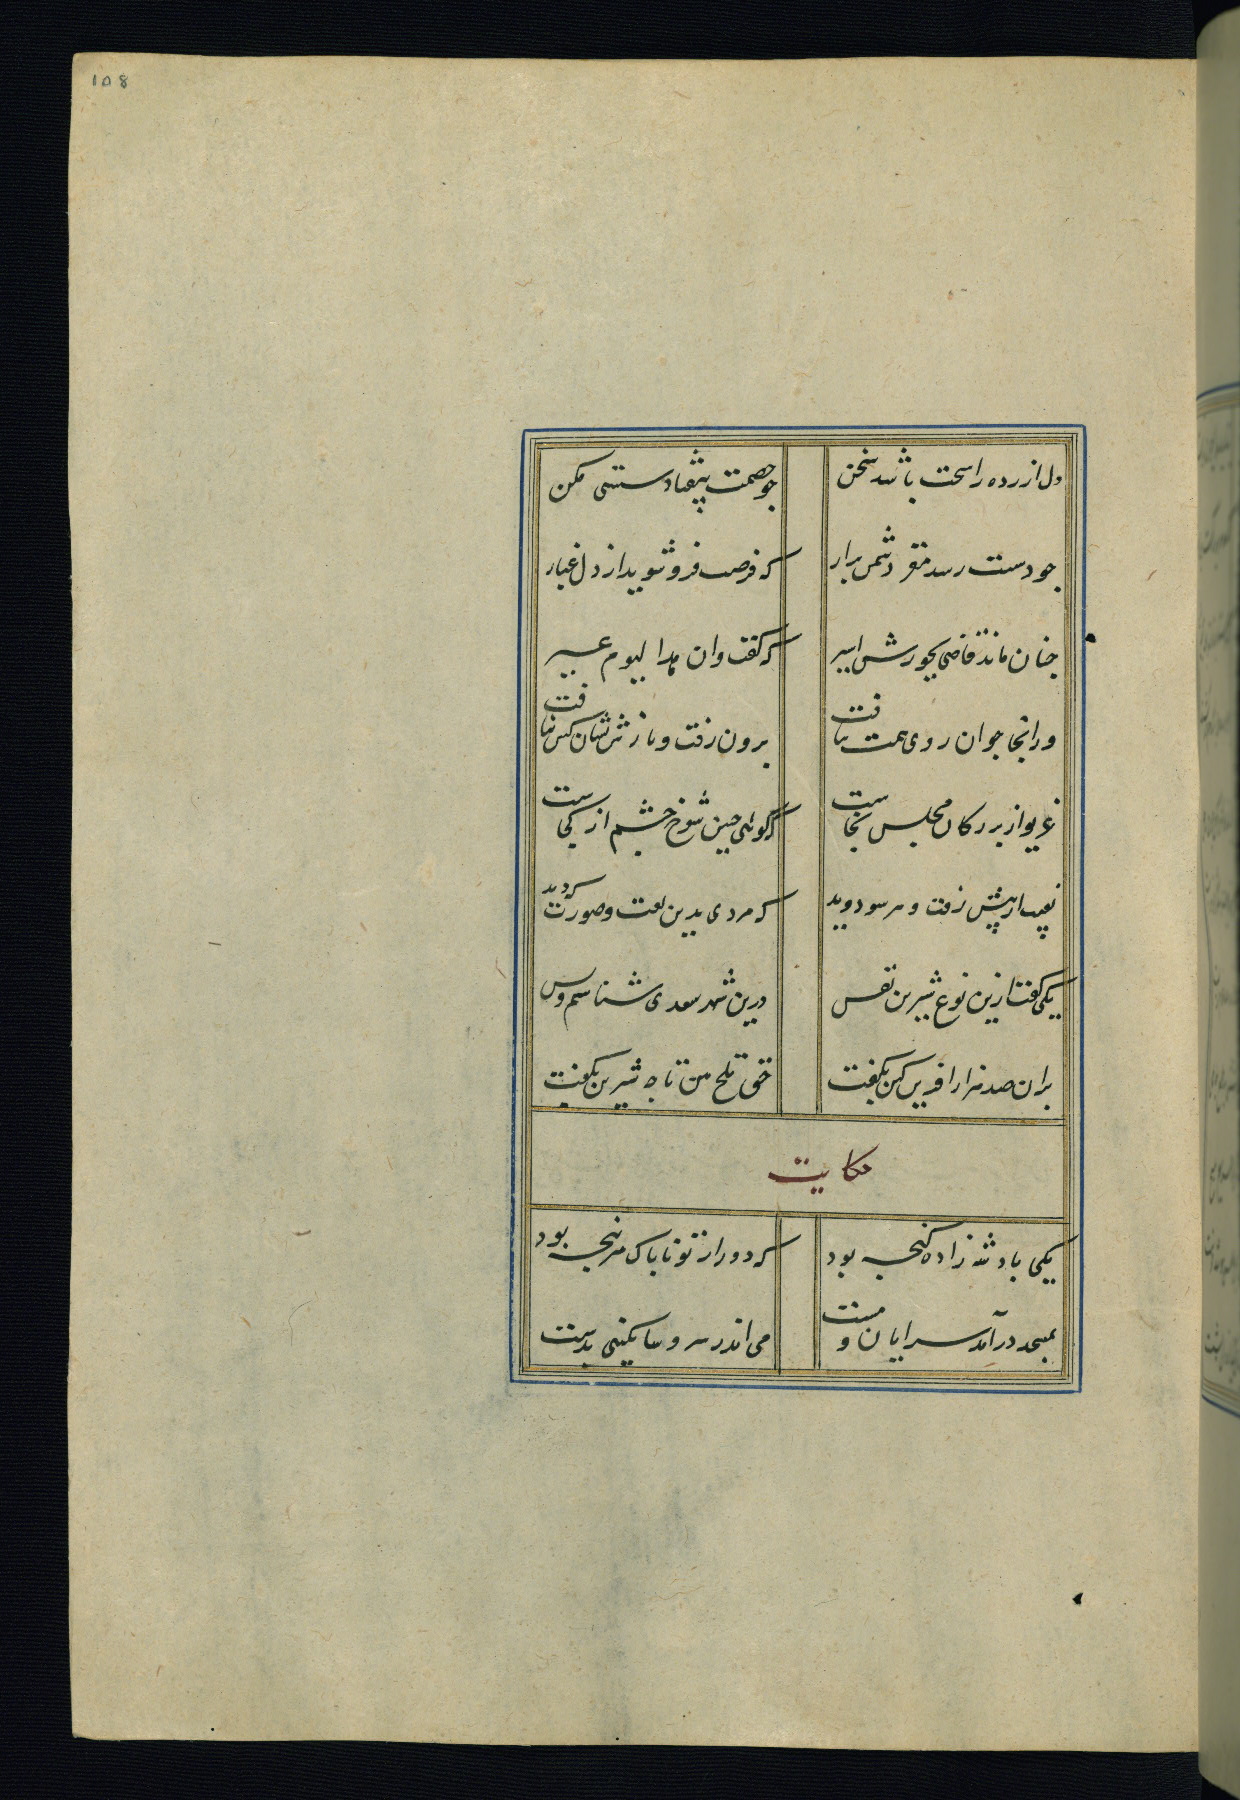 ۱۵۸
دل ازرده را سخت باشد سخن
جو خصمت بیفتاد سستی مکن
جو دستت رسد مغز دشمن برار
که فرصت فروشوید از دل غبار
جنان ماند قاضی بجورش اسیر
که گفت وان هدا لیوم عسیر
ورانجا جوان روی همت بتافت
برون رفت و بازش نشان کس نیافت
غریو از بزرکان مجلس بخاست
که گوئی جنین شوخ چشم از کجاست
نقیب از پیش رفت و هر سو دوید
که مردی بدین نعت و صورت که دید
یکی گفت ازین نوع شیرین نفس
درین شهر سعدی شناسیم و بس
بران صد هزار افرین کین بکفت
حق تلخ بین تا چه شیرین بکفت
حکایت
یکی بادشه زاده کنجه بود
که دور از تو ناباک سرنجه بود
بمسجد درآمد سرایان و مست
می اندر سر و ساتکینی بدست